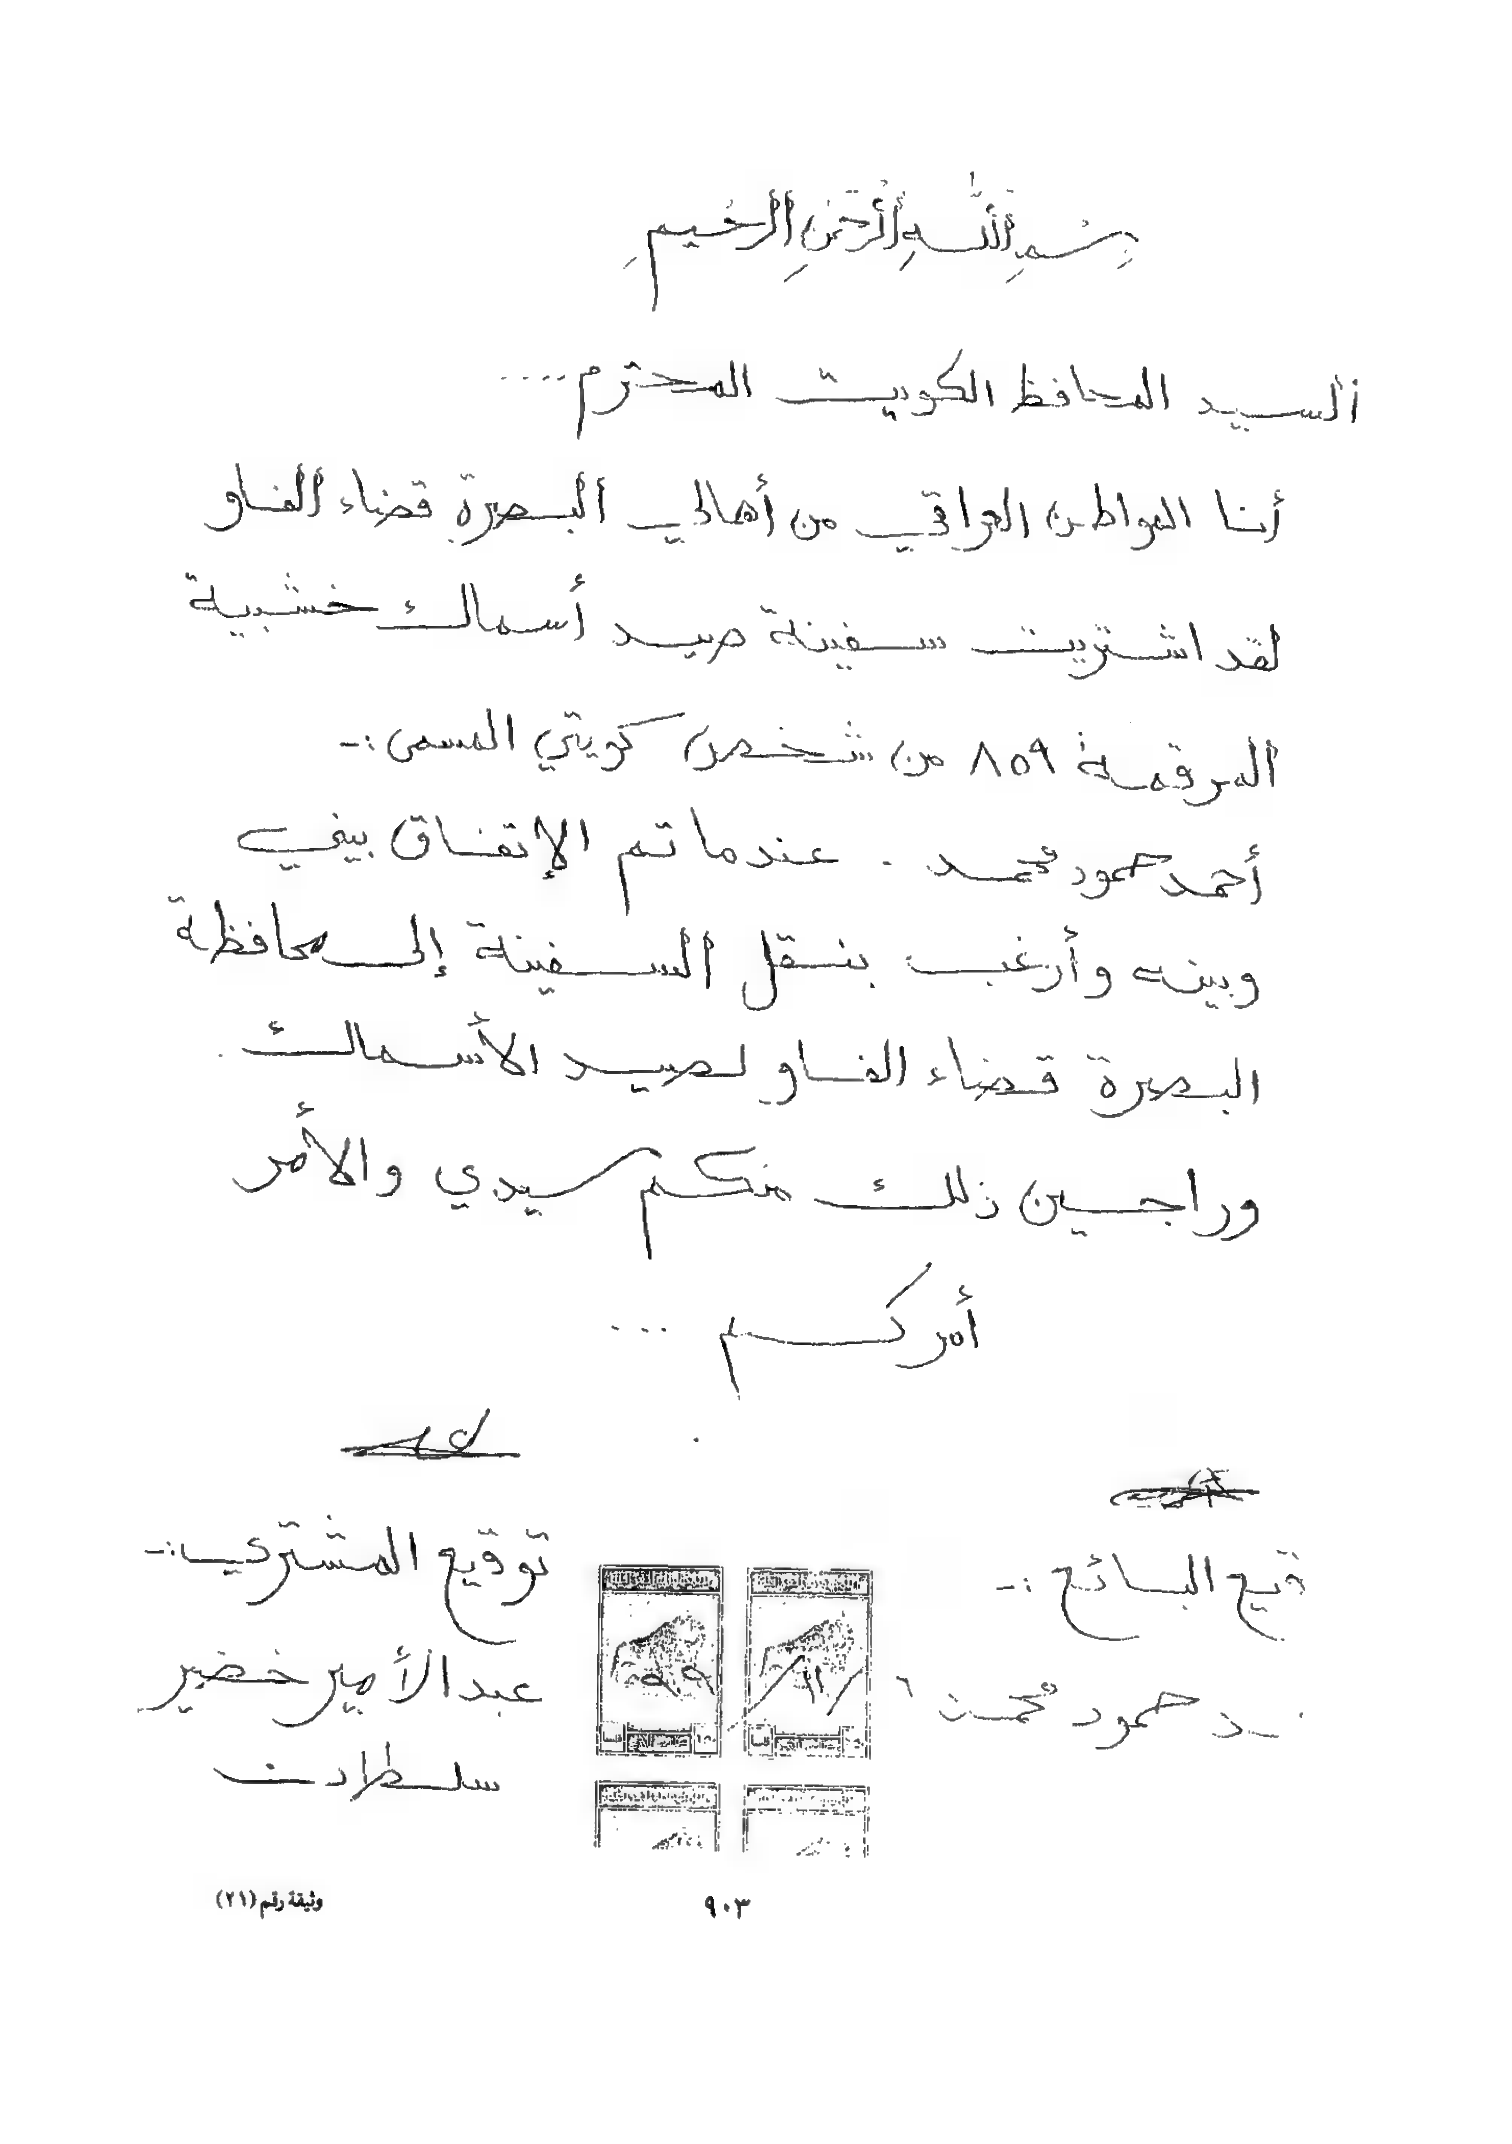 بسم الله الرحمن الرحيم
السيد المحافظ الكويت المحترم ....
أنا المواطن العراقي من أهالي البصرة قضاء الفاو
لقد اشتريت سفينة صيد أسماك خشبية
المرقمة ٨٥٩ من شخص كويتي المسمى :-
أحمد حمود محمد . عندما تم الإتفاق بيني
وبينه وأرغب بنقل السفينة إلى محافظة
البصرة قضاء الفاو لصيد الأسماك .
وراجين ذلك منكم سيدي والأمر
أمركم ...
قيع البائع :-
توقيع المشتري :-
ـد حمود محمد
عبد الأمير خضير
سلطان
٩٠٣
وثيقة رقم (٢١)